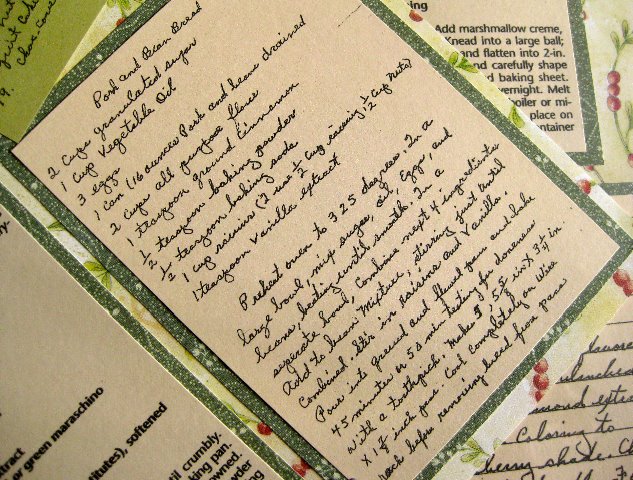 Pork and Bean Bread
2 Cups granulated sugar
1 Cup Vegetable Oil
3 eggs
1 Can (16 ounces Pork and beans drained
2 Cups all purpose flour
1 teaspoon ground Cinnamon
1/2 teaspoon baking powder
1/2 teaspoon baking soda
1 Cup raisins (I use 1/2 Cup raisins 1/2 Cup Nuts)
1 teaspoon Vanilla extract
Preheat oven to 325 degrees. In a
large bowl, mix sugar, oil, eggs, and
beans, beating until smooth. In a
seperate bowl, Combine next 4 ingredients
Add to bean Mixture, stirring just until
Combined. Stir in raisins and Vanilla.
Pour into greased and floured pan and bake
45 minutes or 50 min testing for doneness
with a toothpick. Makes
inch pan. Cool Completely on Wire
rack before removing bread from pans
ing
Add marshmallow creme,
Knead into a large ball;
and flatten into 2-in.
nd carefully shape
d baking sheet.
vernight. Melt
oiler or mi-
place on
ontainer
or green maraschino
tract
titutes), softened
til crumbly.
king pan.
owned.
wder
Coloring to
19.